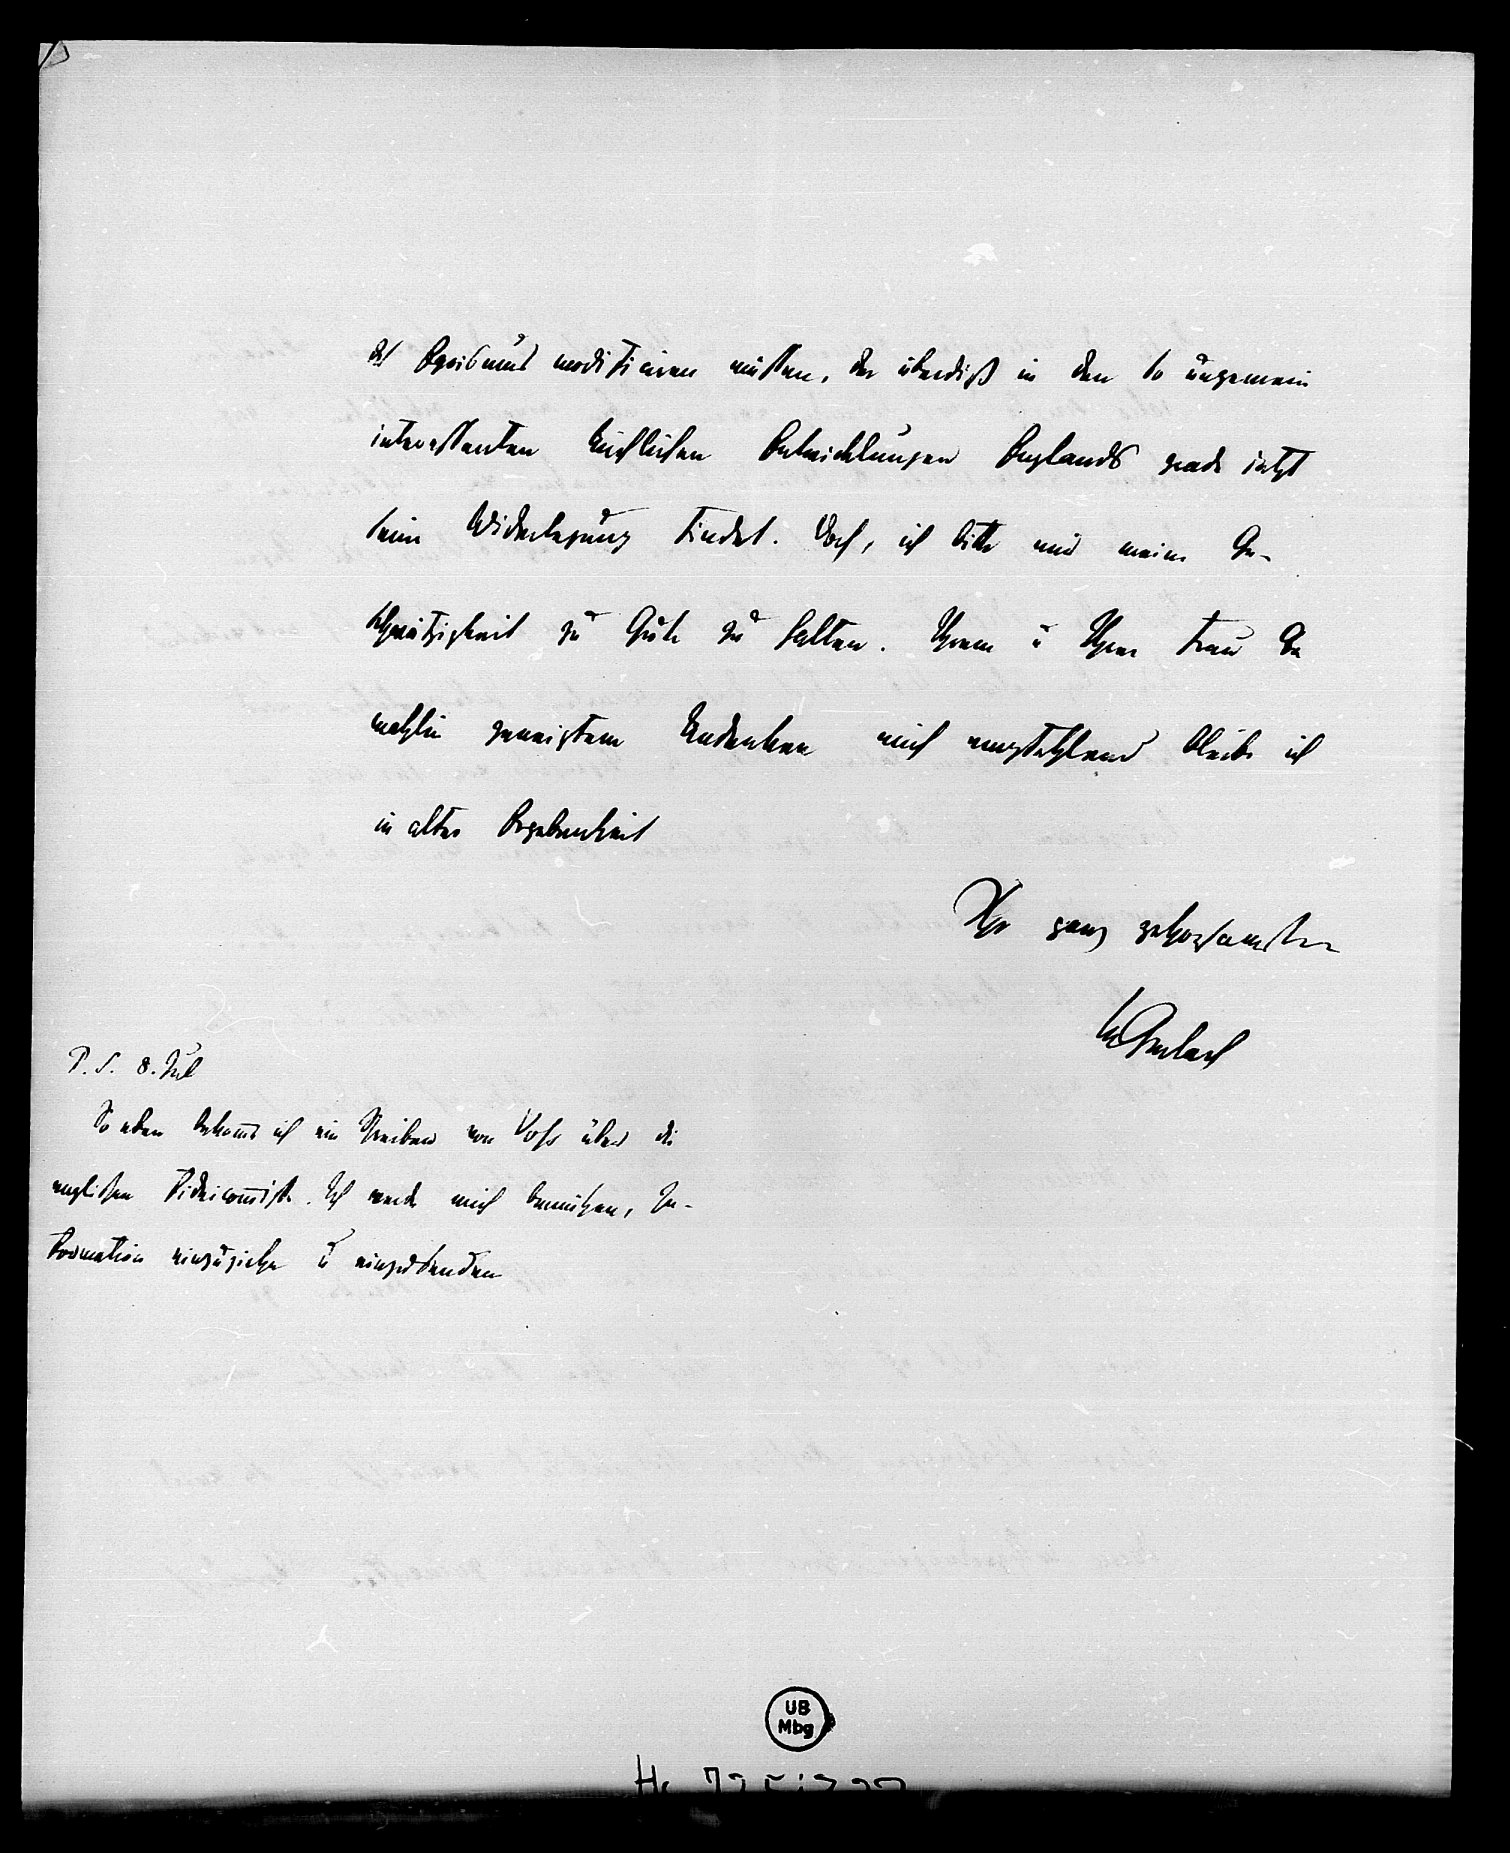 des Egoismus modificiren müssen, der überdiß in den so ungemein
interessanten kirchlichen Entwicklungen Englands grade jetzt
seine Widerlegung findet. Doch, ich bitte mir meine Ge-
schwätzigkeit zu Gute zu halten. Ihrem u Ihrer Frau Ge
mahlin geneigtem Andenken mich empfehlend bleibe ich
in alter Ergebenheit
Ihr ganz gehorsamster
Gerlach
P. S. 8. Jul
So eben bekome ich ein Schreiben von Voss über die
englischen Fideicomisse. Ich werde mich bemühen, In-
formation einzuziehen u einzusenden
UB
Mbg